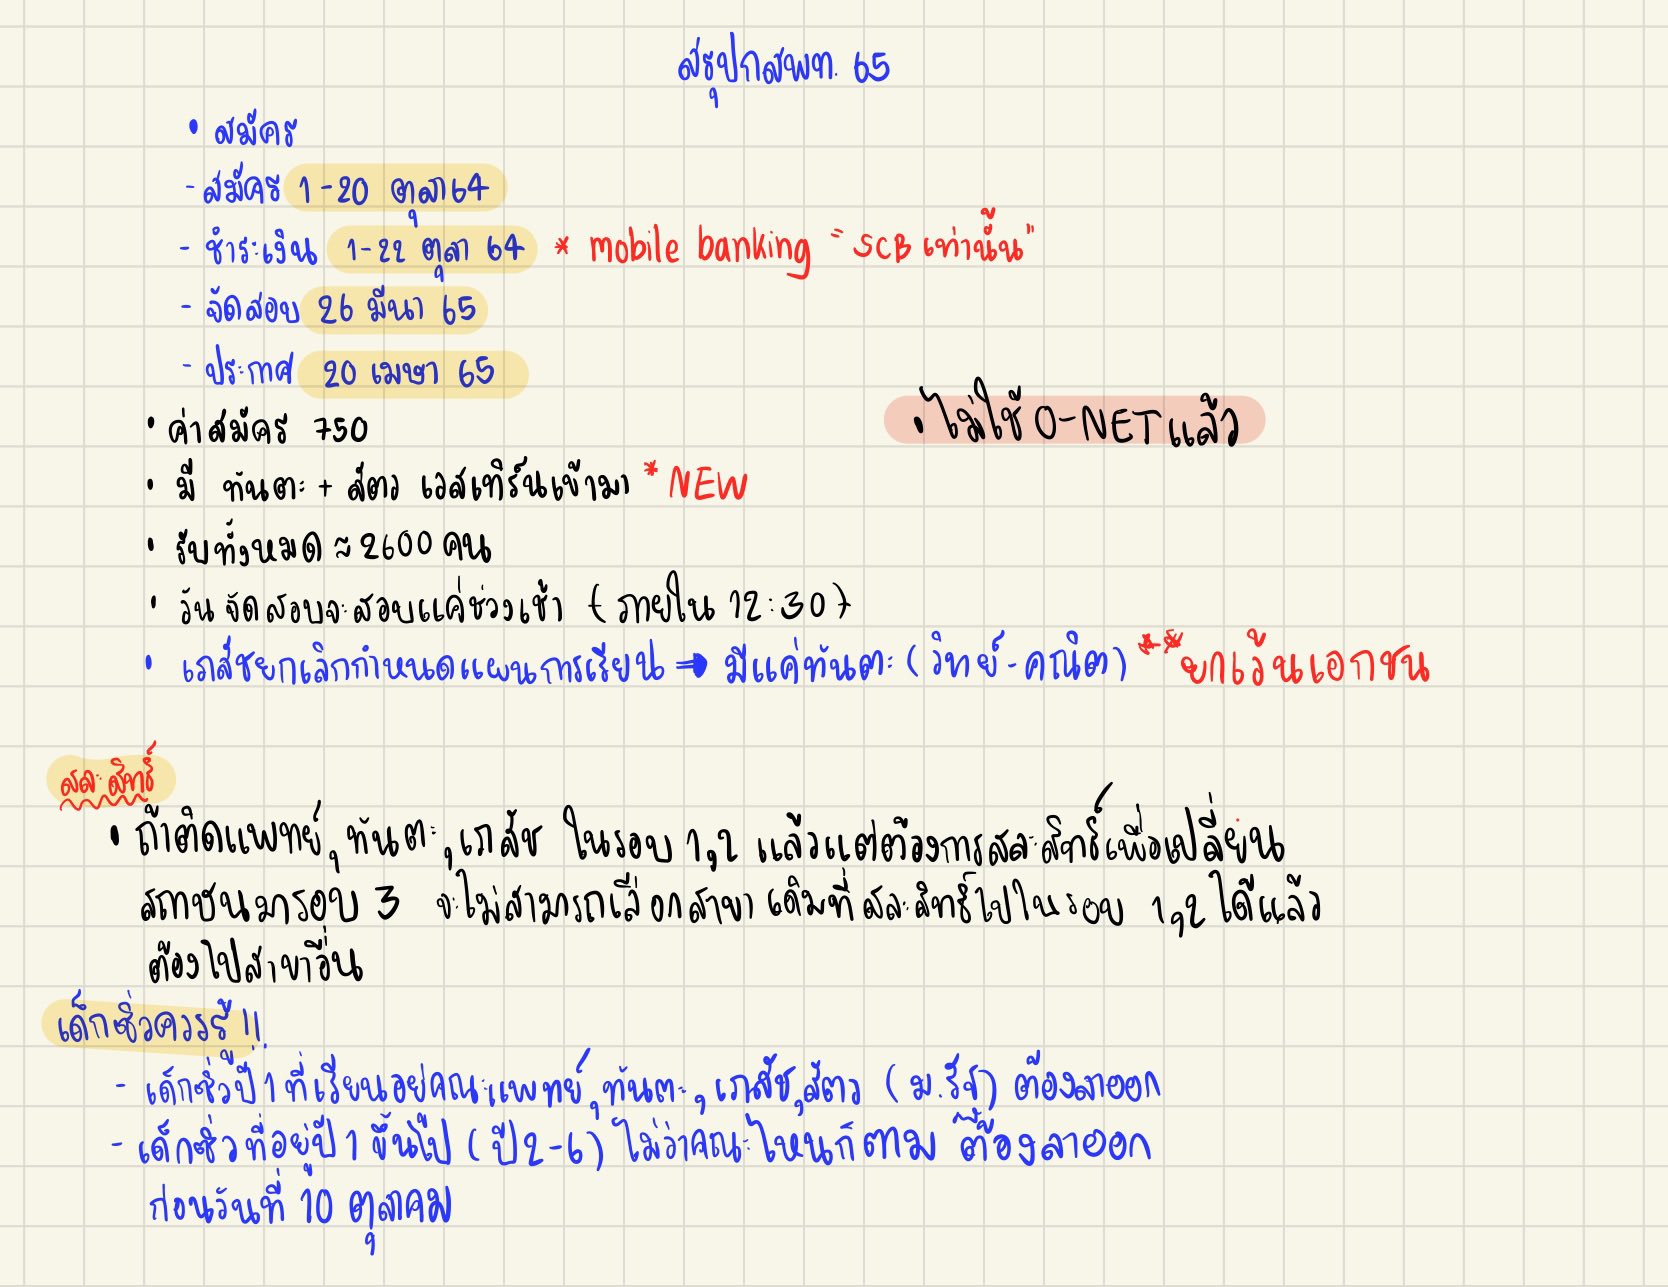 สรุปกสพท. 65
• สมัคร
- สมัคร 1-20 ตุลา 64
- ชำระเงิน 1-22 ตุลา 64 * mobile banking "SCB เท่านั้น"
- จัดสอบ 26 มีนา 65
- ประกาศ 20 เมษา 65
• ค่าสมัคร 750
• ไม่ใช้ O-NET แล้ว
• มี ทันตะ + สัตว เวสเทิร์นเข้ามา * NEW
• รับทั้งหมด ≈ 2600 คน
• วันจัดสอบจะสอบแค่ช่วงเช้า (ภายใน 12:30)
• เภสัชยกเลิกกำหนดแผนการเรียน ⇒ มีแค่ทันตะ (วิทย์-คณิต) ** ยกเว้นเอกชน
สละสิทธิ์
• ถ้าติดแพทย์, ทันตะ, เภสัช ในรอบ 1,2 แล้วแต่ต้องการสละสิทธิ์เพื่อเปลี่ยน
สถาบันมารอบ 3 จะไม่สามารถเลือกสาขาเดิมที่สละสิทธิ์ไปในรอบ 1,2 ได้แล้ว
ต้องไปสาขาอื่น
เด็กซิ่วควรรู้ !!
- เด็กซิ่วปี 1 ที่เรียนอยู่คณะแพทย์, ทันตะ, เภสัช, สัตว (ม.รัฐ) ต้องลาออก
- เด็กซิ่วที่อยู่ปี 1 ขึ้นไป (ปี 2-6) ไม่ว่าคณะไหนก็ตาม ต้องลาออก
ก่อนวันที่ 10 ตุลาคม